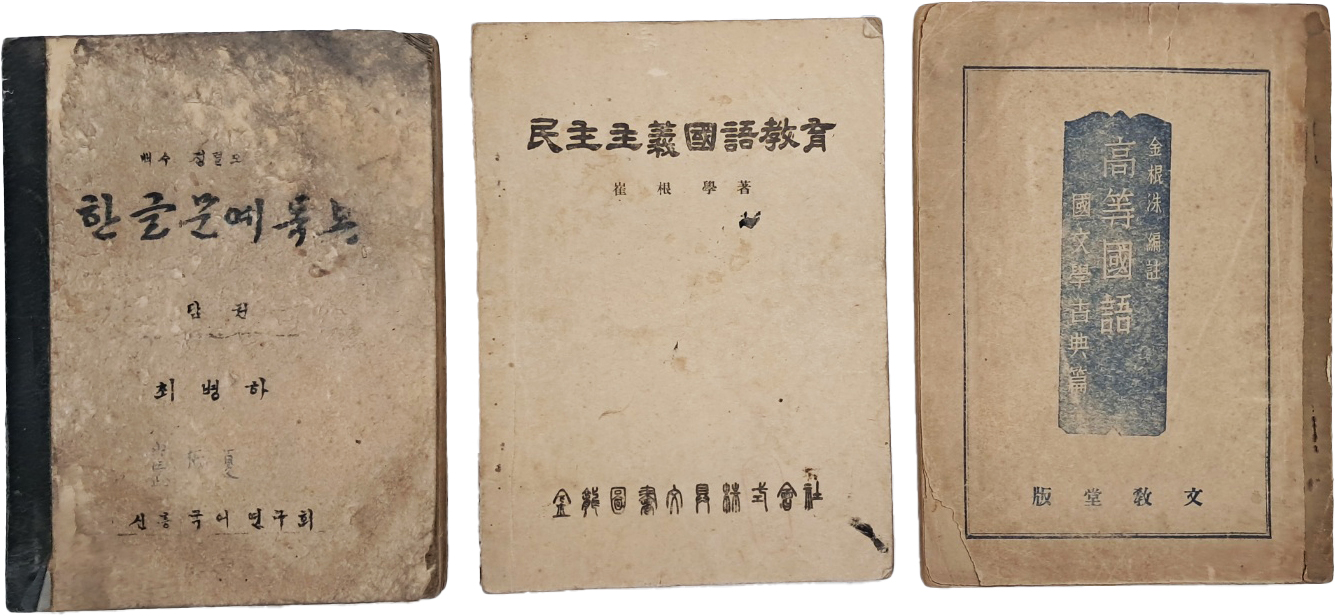 백수 정렬모
한글문예독본
담권
최병하
崔炳夏
신흥국어연구회
民主主義國語教育
崔根學著
金龍圖書文具株式會社
金根洙編註
高等國語
國文學古典篇
版堂教文